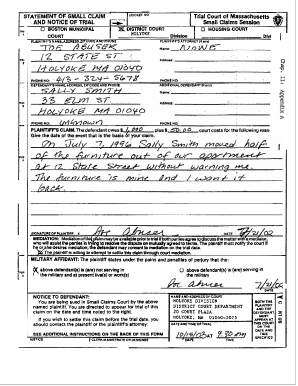 STATEMENT OF SMALL CLAIM
AND NOTICE OF TRIAL
DOCKET NO.
Trial Court of Massachusetts
Small Claims Session
BOSTON MUNICIPAL
COURT
DISTRICT COURT
HOLYOKE Division
HOUSING COURT
PLAINTIFF'S NAME, ADDRESS, ZIP CODE AND PHONE
JOE ABUSER
12 STATE ST
HOLYOKE MA 01040
PHONE NO. 413-324-5678
PLAINTIFF'S ATTORNEY
Name: NONE
Address:
PHONE NO.
DEFENDANT'S NAME, ADDRESS, ZIP CODE AND PHONE
SALLY SMITH
33 ELM ST
HOLYOKE MA 01040
PHONE NO. UNKNOWN
ADDITIONAL DEFENDANT
Name:
Address:
PHONE NO.
PLAINTIFF'S CLAIM. The defendant owes $ plus $ court costs for the following reasons:
Give the date of the event that is the basis of your claim.
On July 7, 1996 Sally Smith moved half
of the furniture out of our apartment
at 12 State Street without warning me.
The furniture is mine and I want it
back.
SIGNATURE OF PLAINTIFF Joe Abuser DATE
MEDIATION: Mediation of this claim may be available prior to trial if both parties agree to discuss the matter with a mediator, who
will assist the parties in trying to resolve the dispute on mutually agreed to terms. The plaintiff must notify the court if
he or she desires mediation; the defendant may consent to mediation on the trial date.
The plaintiff is willing to attempt to settle this claim through court mediation.
MILITARY AFFIDAVIT: The plaintiff states under the pains and penalties of perjury that the:
above defendant(s) is (are) not serving in
the military and at present live(s) or work(s)
above defendant(s) is (are) serving in
the military
Joe Abuser
NOTICE TO DEFENDANT:
You are being sued in Small Claims Court by the above
named plaintiff. You are directed to appear for trial of this
claim on the date and time noted to the right.
If you wish to settle this claim before the trial date, you
should contact the plaintiff or the plaintiff's attorney.
SEE ADDITIONAL INSTRUCTIONS ON THE BACK OF THIS FORM
NAME AND ADDRESS OF COURT
HOLYOKE DIVISION
DISTRICT COURT DEPARTMENT
20 COURT PLAZA
HOLYOKE, MA 01040-5075
DATE AND TIME OF TRIAL
9:30 AM
BOTH THE
PLAINTIFF
AND THE
DEFENDANT
MUST
APPEAR AT
THIS COURT
ON THE
DATE AND
TIME
SPECIFIED
Chap. 11, Appendix A